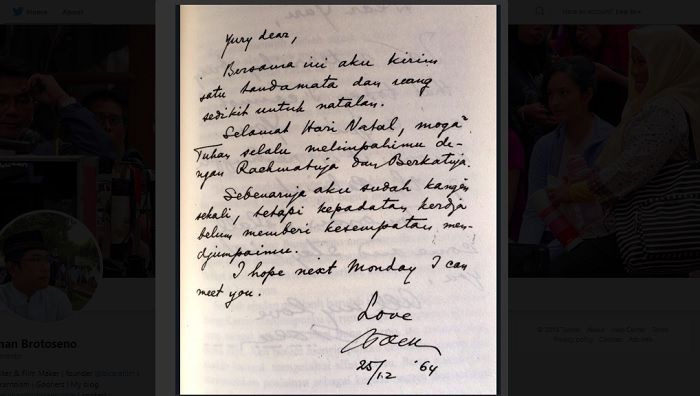 Home About
Have an account? Log in
Yury dear,
Bersama ini aku kirim
satu tandamata dan uang
sedikit untuk natalan.
Selamat Hari Natal, moga²
Tuhan selalu melimpahimu de-
ngan Rachmatnja dan Berkatnja.
Sebenarnja aku sudah kangen
sekali, tetapi kepadatan kerdja
belum memberi kesempatan men-
djumpaimu.
I hope next Monday I can
meet you.
Love
25/12 '64
man Brotoseno
© 2018 Twitter About Help Center Terms
Privacy policy Cookies Ads info
iter & Film Maker | founder
| Gooners | My blog